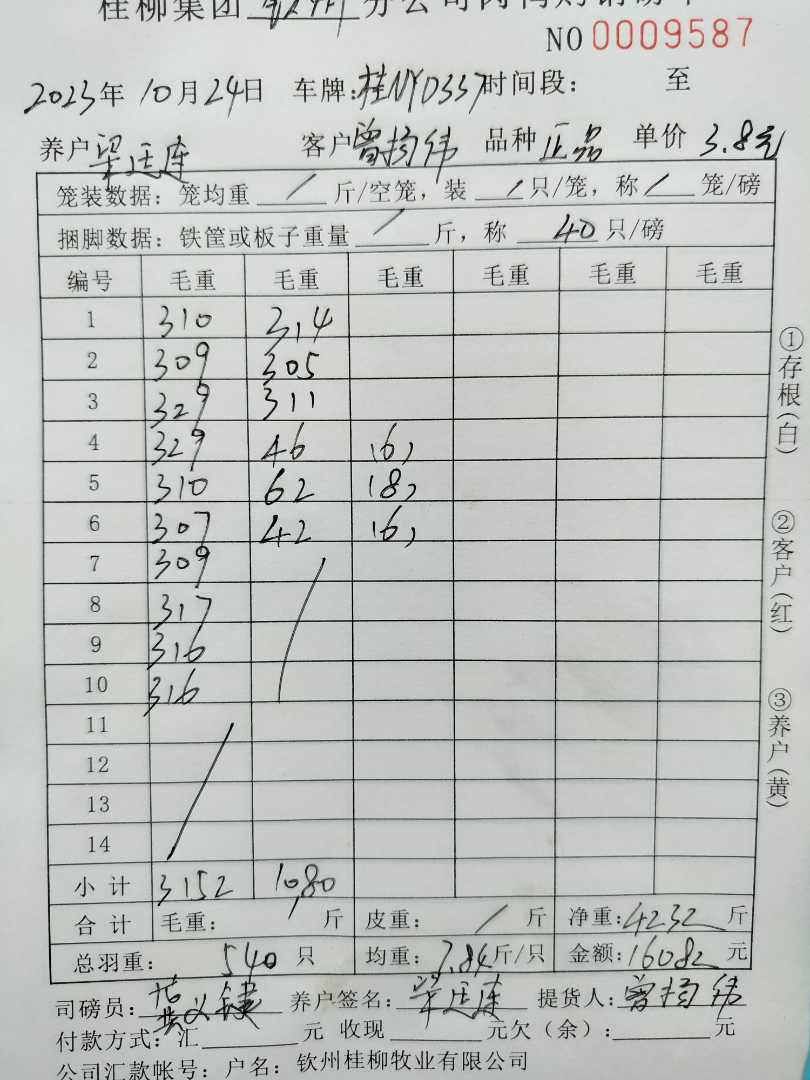 桂柳集团 分公司
NO 0009587
2023年 10月24日 车牌:桂NYD337 时间段: 至
养户 梁廷连 客户 曾扬纬 品种 正品 单价 3.8元
笼装数据: 笼均重 / 斤/空笼, 装 / 只/笼, 称 / 笼/磅
捆脚数据: 铁筐或板子重量 / 斤, 称 40 只/磅
编号 毛重 毛重 毛重 毛重 毛重 毛重
1 310 314
2 309 305
3 329 311
4 329 46 (6)
5 310 62 (8)
6 307 42 (6)
7 309
8 317
9 316
10 316
11
12
13
14
小计 3152 1080
合计 毛重: 斤 皮重: / 斤 净重: 4232 斤
总羽重: 540 只 均重: 7.84 斤/只 金额: 16082 元
司磅员: 养户签名: 梁廷连 提货人: 曾扬纬
付款方式: 汇 元 收现 元欠(余): 元
公司汇款帐号: 户名: 钦州桂柳牧业有限公司
①存根(白)
②客户(红)
③养户(黄)